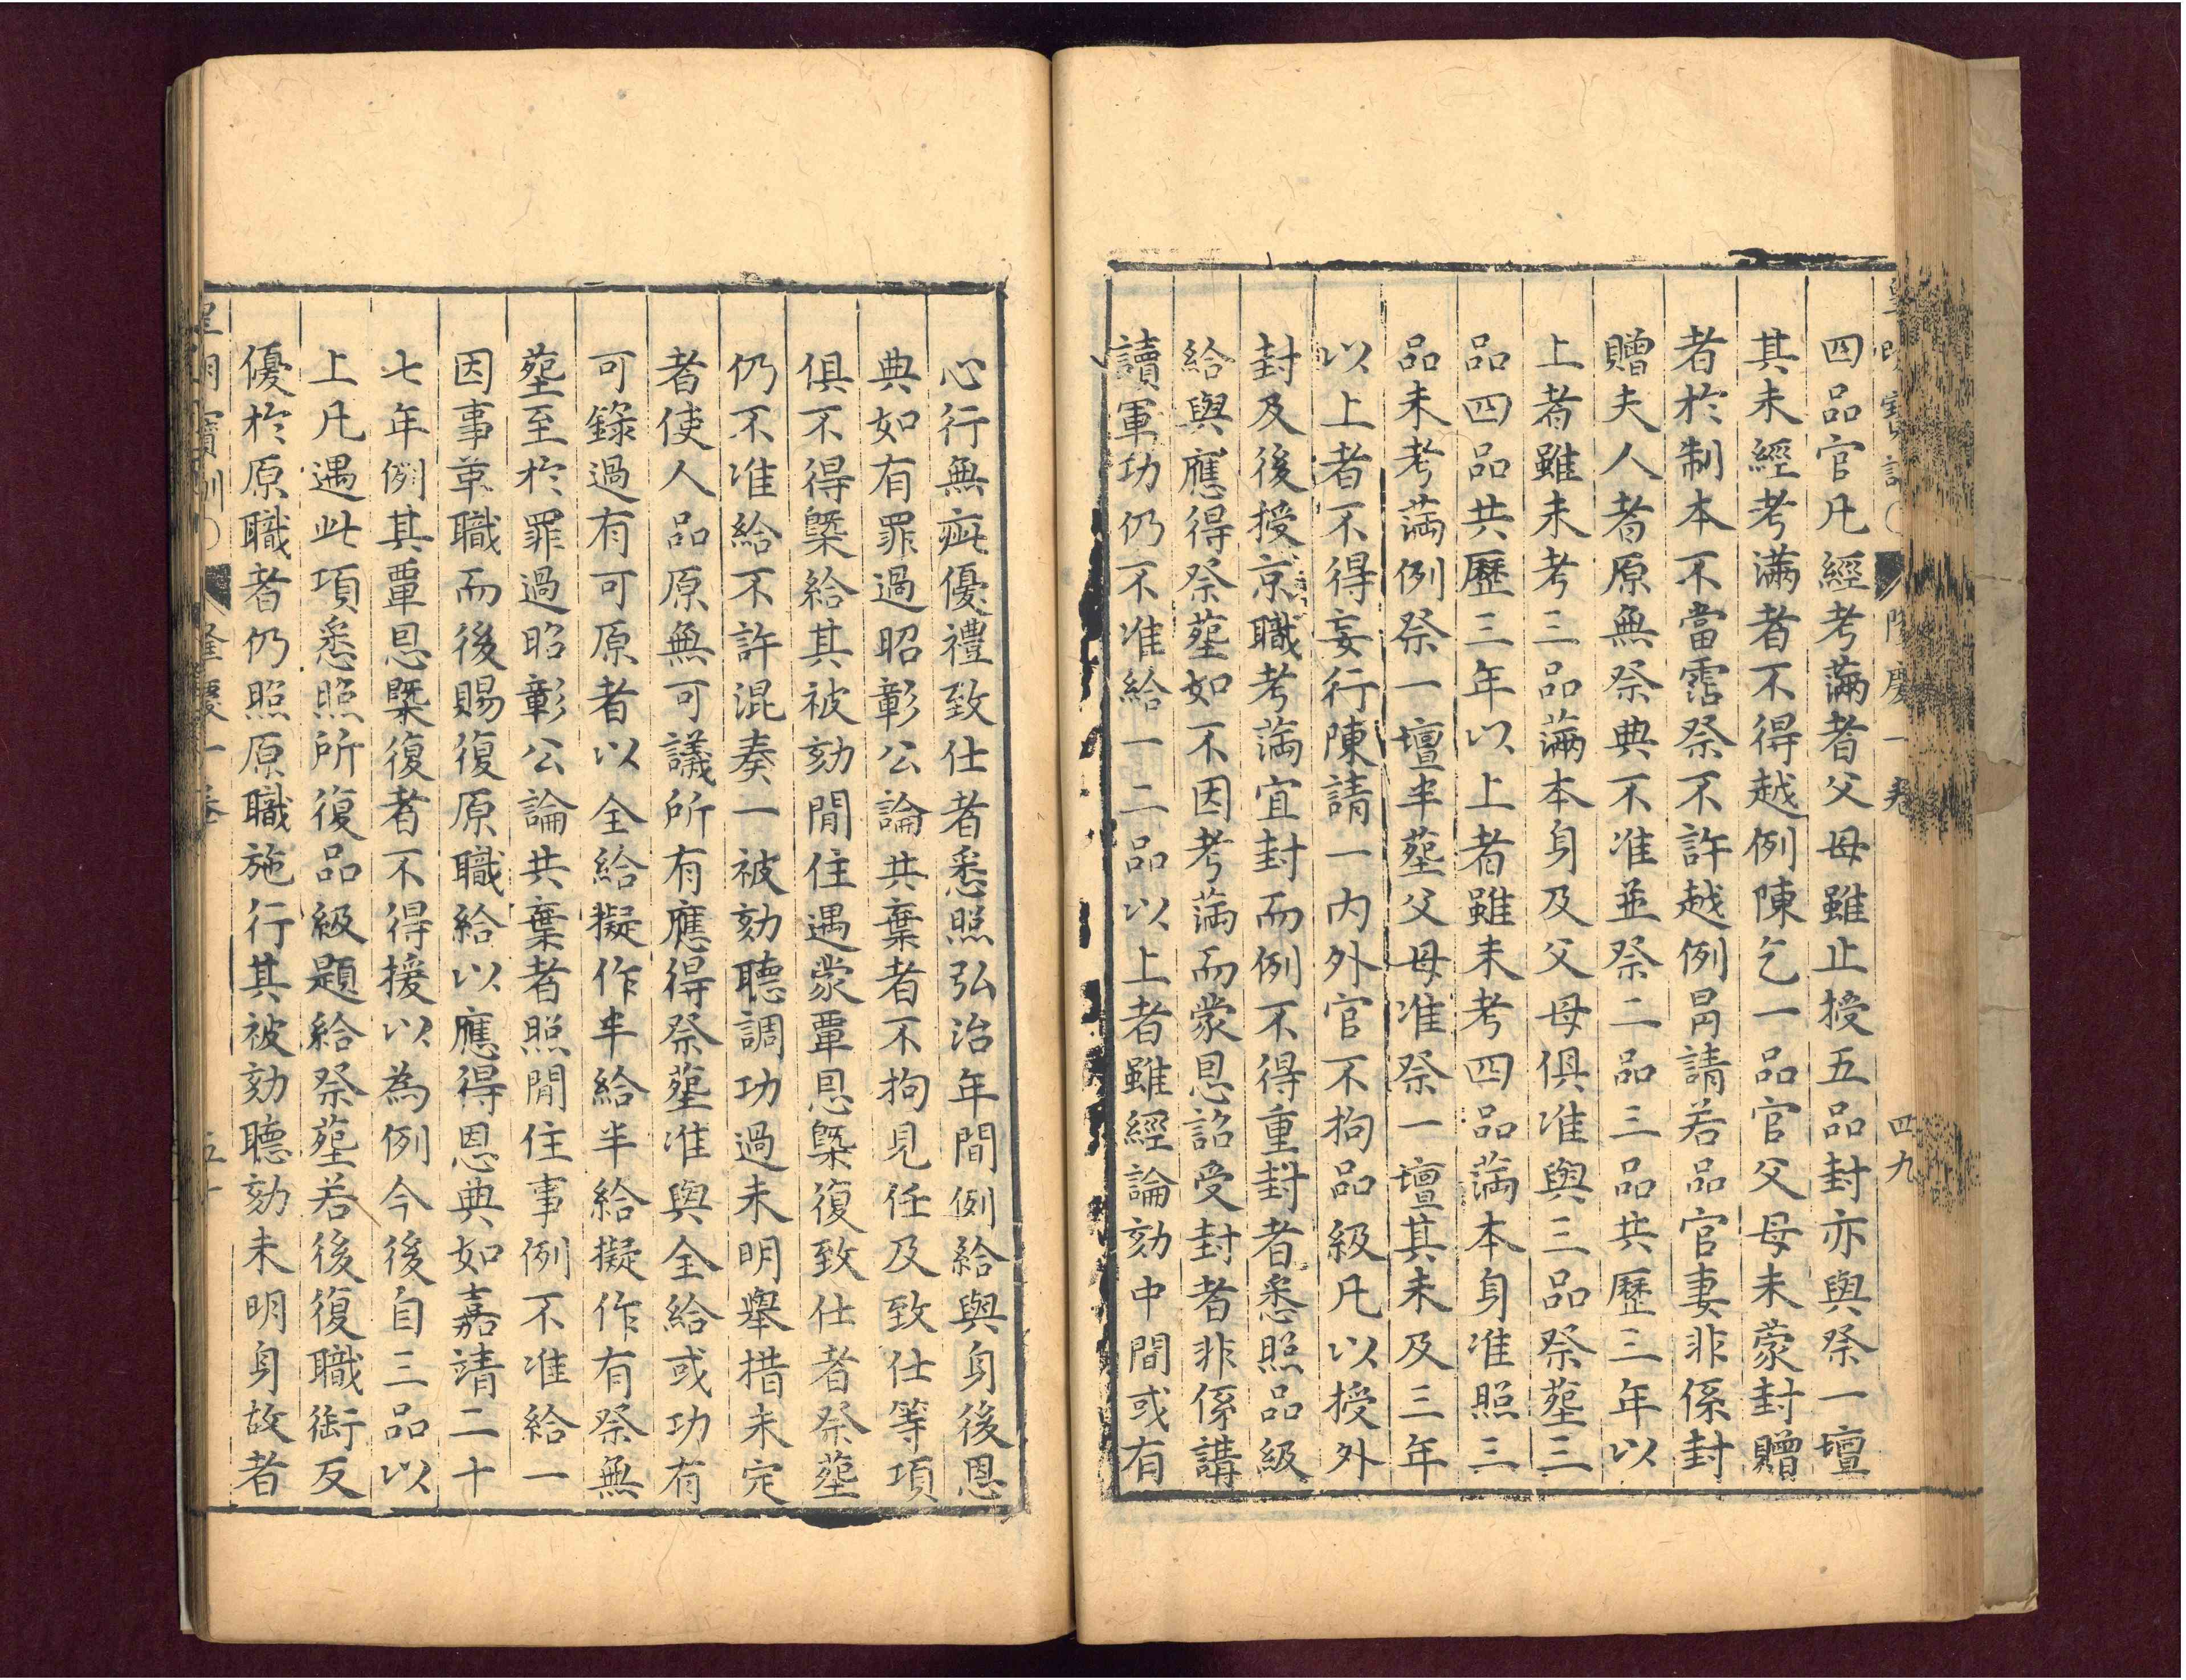 皇明寶訓〇 隆慶一卷 四九
四品官凡經考滿者父母雖止授五品封亦與祭一壇
其未經考滿者不得越例陳乞一品官父母未蒙封贈
者於制本不當霑祭不許越例冐請若品官妻非係封
贈夫人者原無祭典不准並祭二品三品共歷三年以
上者雖未考三品滿本身及父母俱准與三品祭塟三
品四品共歷三年以上者雖未考四品滿本身准照三
品未考滿例祭一壇半塟父母准祭一壇其未及三年
以上者不得妄行陳請一內外官不拘品級凡以授外
封及後授京職考滿宜封而例不得重封者悉照品級
給與應得祭塟如不因考滿而蒙恩詔受封者非係講
讀軍功仍不准給一二品以上者雖經論劾中間或有
心行無疵優禮致仕者悉照弘治年間例給與身後恩
典如有罪過昭彰公論共棄者不拘見任及致仕等項
俱不得槩給其被劾閒住遇蒙覃恩槩復致仕者祭塟
仍不准給不許混奏一被劾聽調功過未明舉措未定
者使人品原無可議所有應得祭塟准與全給或功有
可錄過有可原者以全給擬作半給半給擬作有祭無
塟至於罪過昭彰公論共棄者照閒住事例不准給一
因事革職而後賜復原職給以應得恩典如嘉靖二十
七年例其覃恩槩復者不得援以為例今後自三品以
上凡遇此項悉照所復品級題給祭塟若後復職銜反
優於原職者仍照原職施行其被劾聽劾未明身故者
皇明寶訓〇 隆慶一卷 五十